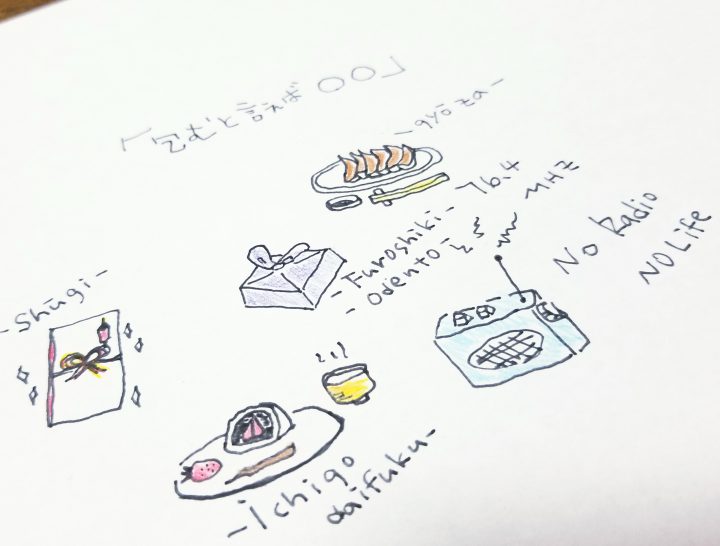 「包むと言えば〇〇」
-gyōza-
-Furoshiki-
-odento-
76.4
MHZ
No Radio
NO Life
-Shūgi-
-ichigo
daifuku-